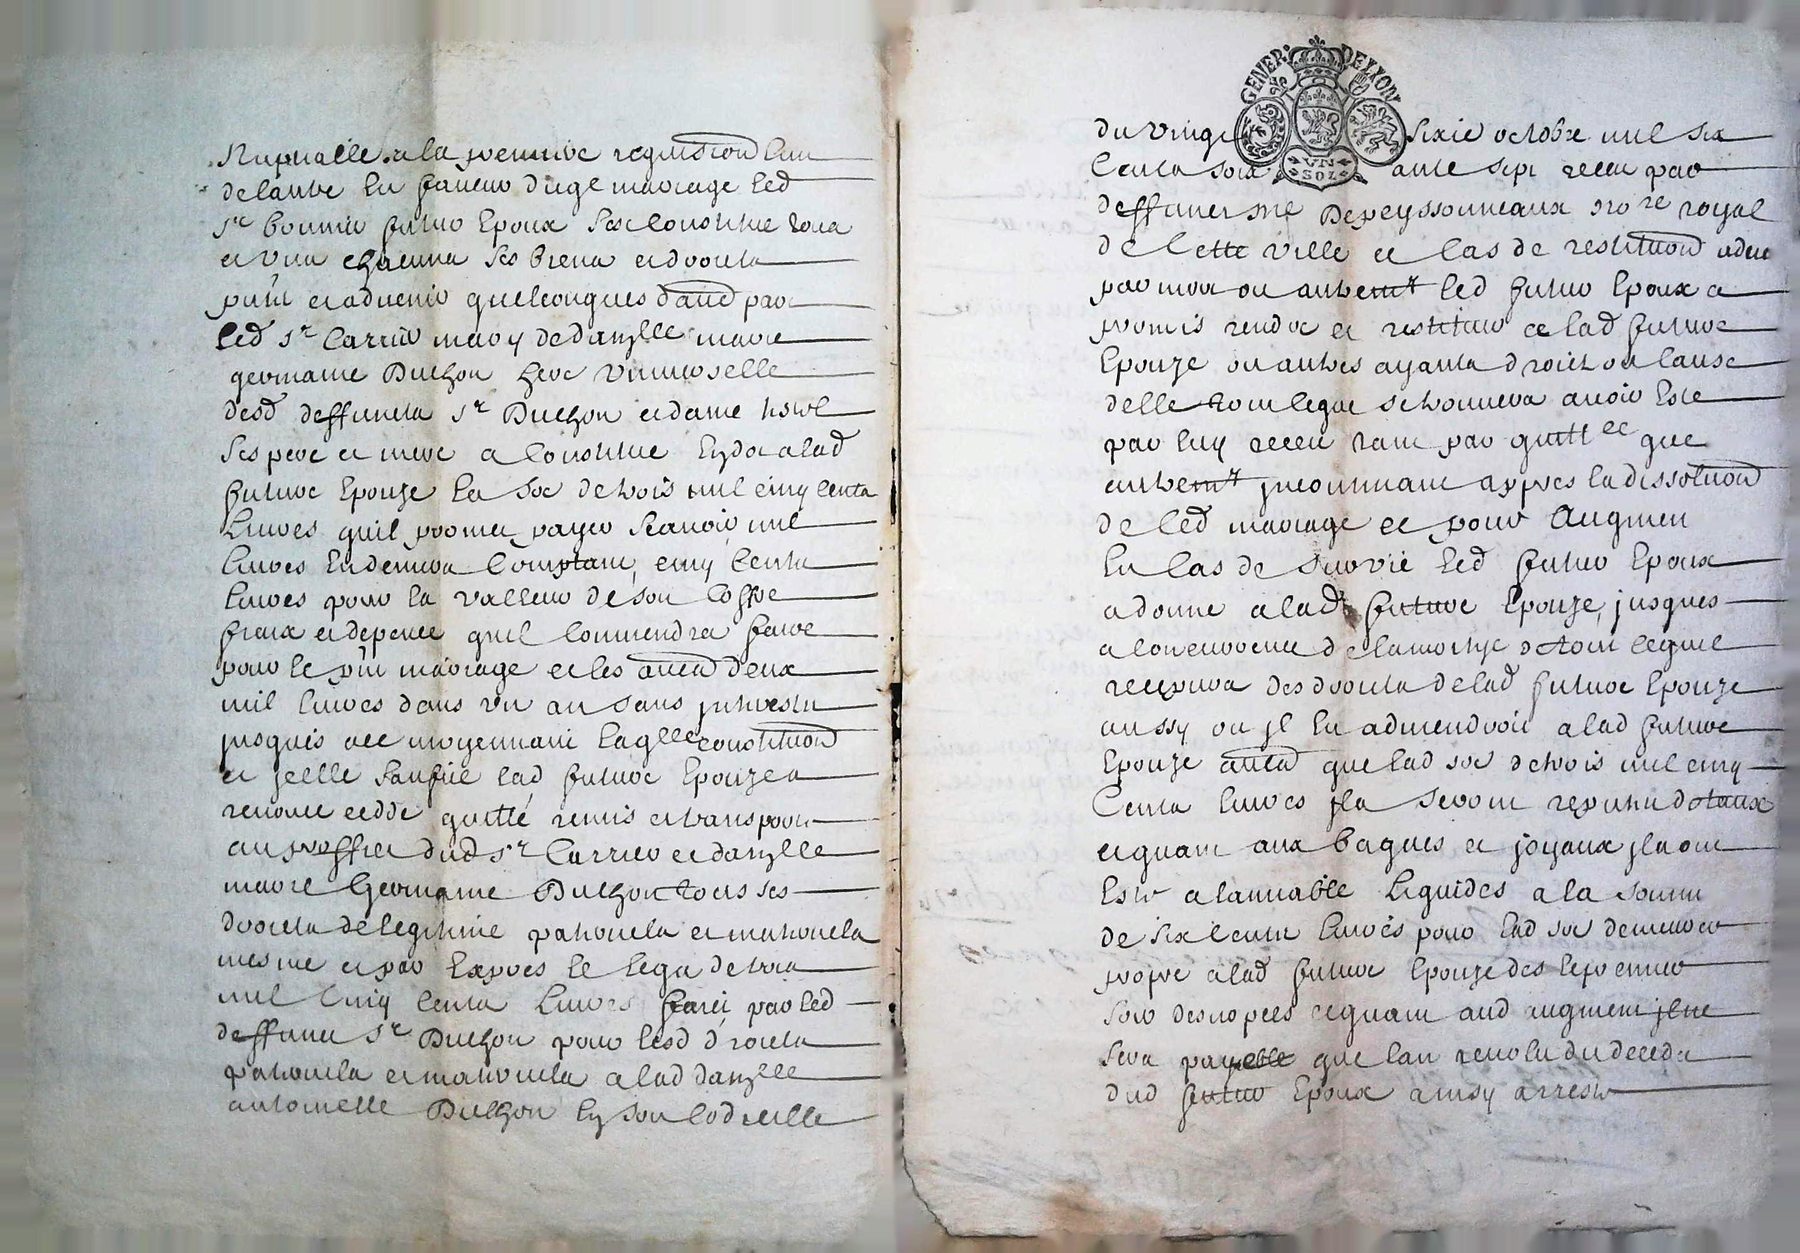 Nuptialle a la premiere requisition lun
de lautre En faveur dugl mariage led
Sr bonnin futur Epoux Ses Constitue tous
et uns chacuns ses biens et droits
pnts et advenir quelconques dautd par
led Sr Carrier mary de damzlle marie
germaine Duchon here universelle
desd deffuncts Sr Duchon et dame
ses pere et mere a Constitue En dot a lad
future Epouze la soe de trois mil cinq Cents
Livres quil promet payer scavoir mil
livres En deniers Comptant, cinq Cents
livres pour la valleur de son Coffre
fraix et depence quil Conviendra faire
pour le pnt mariage et les autrs deux
mil livres dans un an sans jnterestz
jusques alle moyennant laglle constitution
et jcelle sansfie lad future Epouze a
renonce cedde quitté remis et transporte
au proffict dud Sr Carrier et damzlle
marie Germaine Duchon tous ses
droits de legitime paternels et maternels
mesme et par Expres le lega de trois
mil Cinq Cents Livres faict par led
deffunct Sr Duchon pour lesd droits
paternels et maternels a lad damzlle
antoinette Duchon En son Codicille
GENER. DE LYON
UN SOL
du vingt sixie octobre mil six
Cents soixante sept receu par
deffunct Me Depeyssonneaux nore royal
de Cette ville et Cas de restitution adve
par mort ou autremt led futur Epoux a
promis rendre et restituer a lad future
Epouze ou autres ayants droict ou Cause
delle tout ce que se trouvera avoir Este
par luy receu tant par quittce que
autremt jncontinant appres la dissolution
de led mariage et pour augment
En Cas de survie led futur Epoux
a donne a lad future Epouze, jusques
a concurrence de la moitye de tout ce quil
recepvra des droits de lad future Epouze
aussy ou jl En adviendroit a lad future
Epouze autrs que lad soe de trois mil cinq
Cents livres jls seront reputes dotaux
et quant aux bagues et joyaux jls ont
Este a lamiable Liquides a la somme
de six Cents livres pour lad soe demeurer
propre a lad future Epouze des le premier
soir des nopces et quant aud augment jl ne
sera payable que lan revolu du deceds
dud futur Epoux ainsy arreste